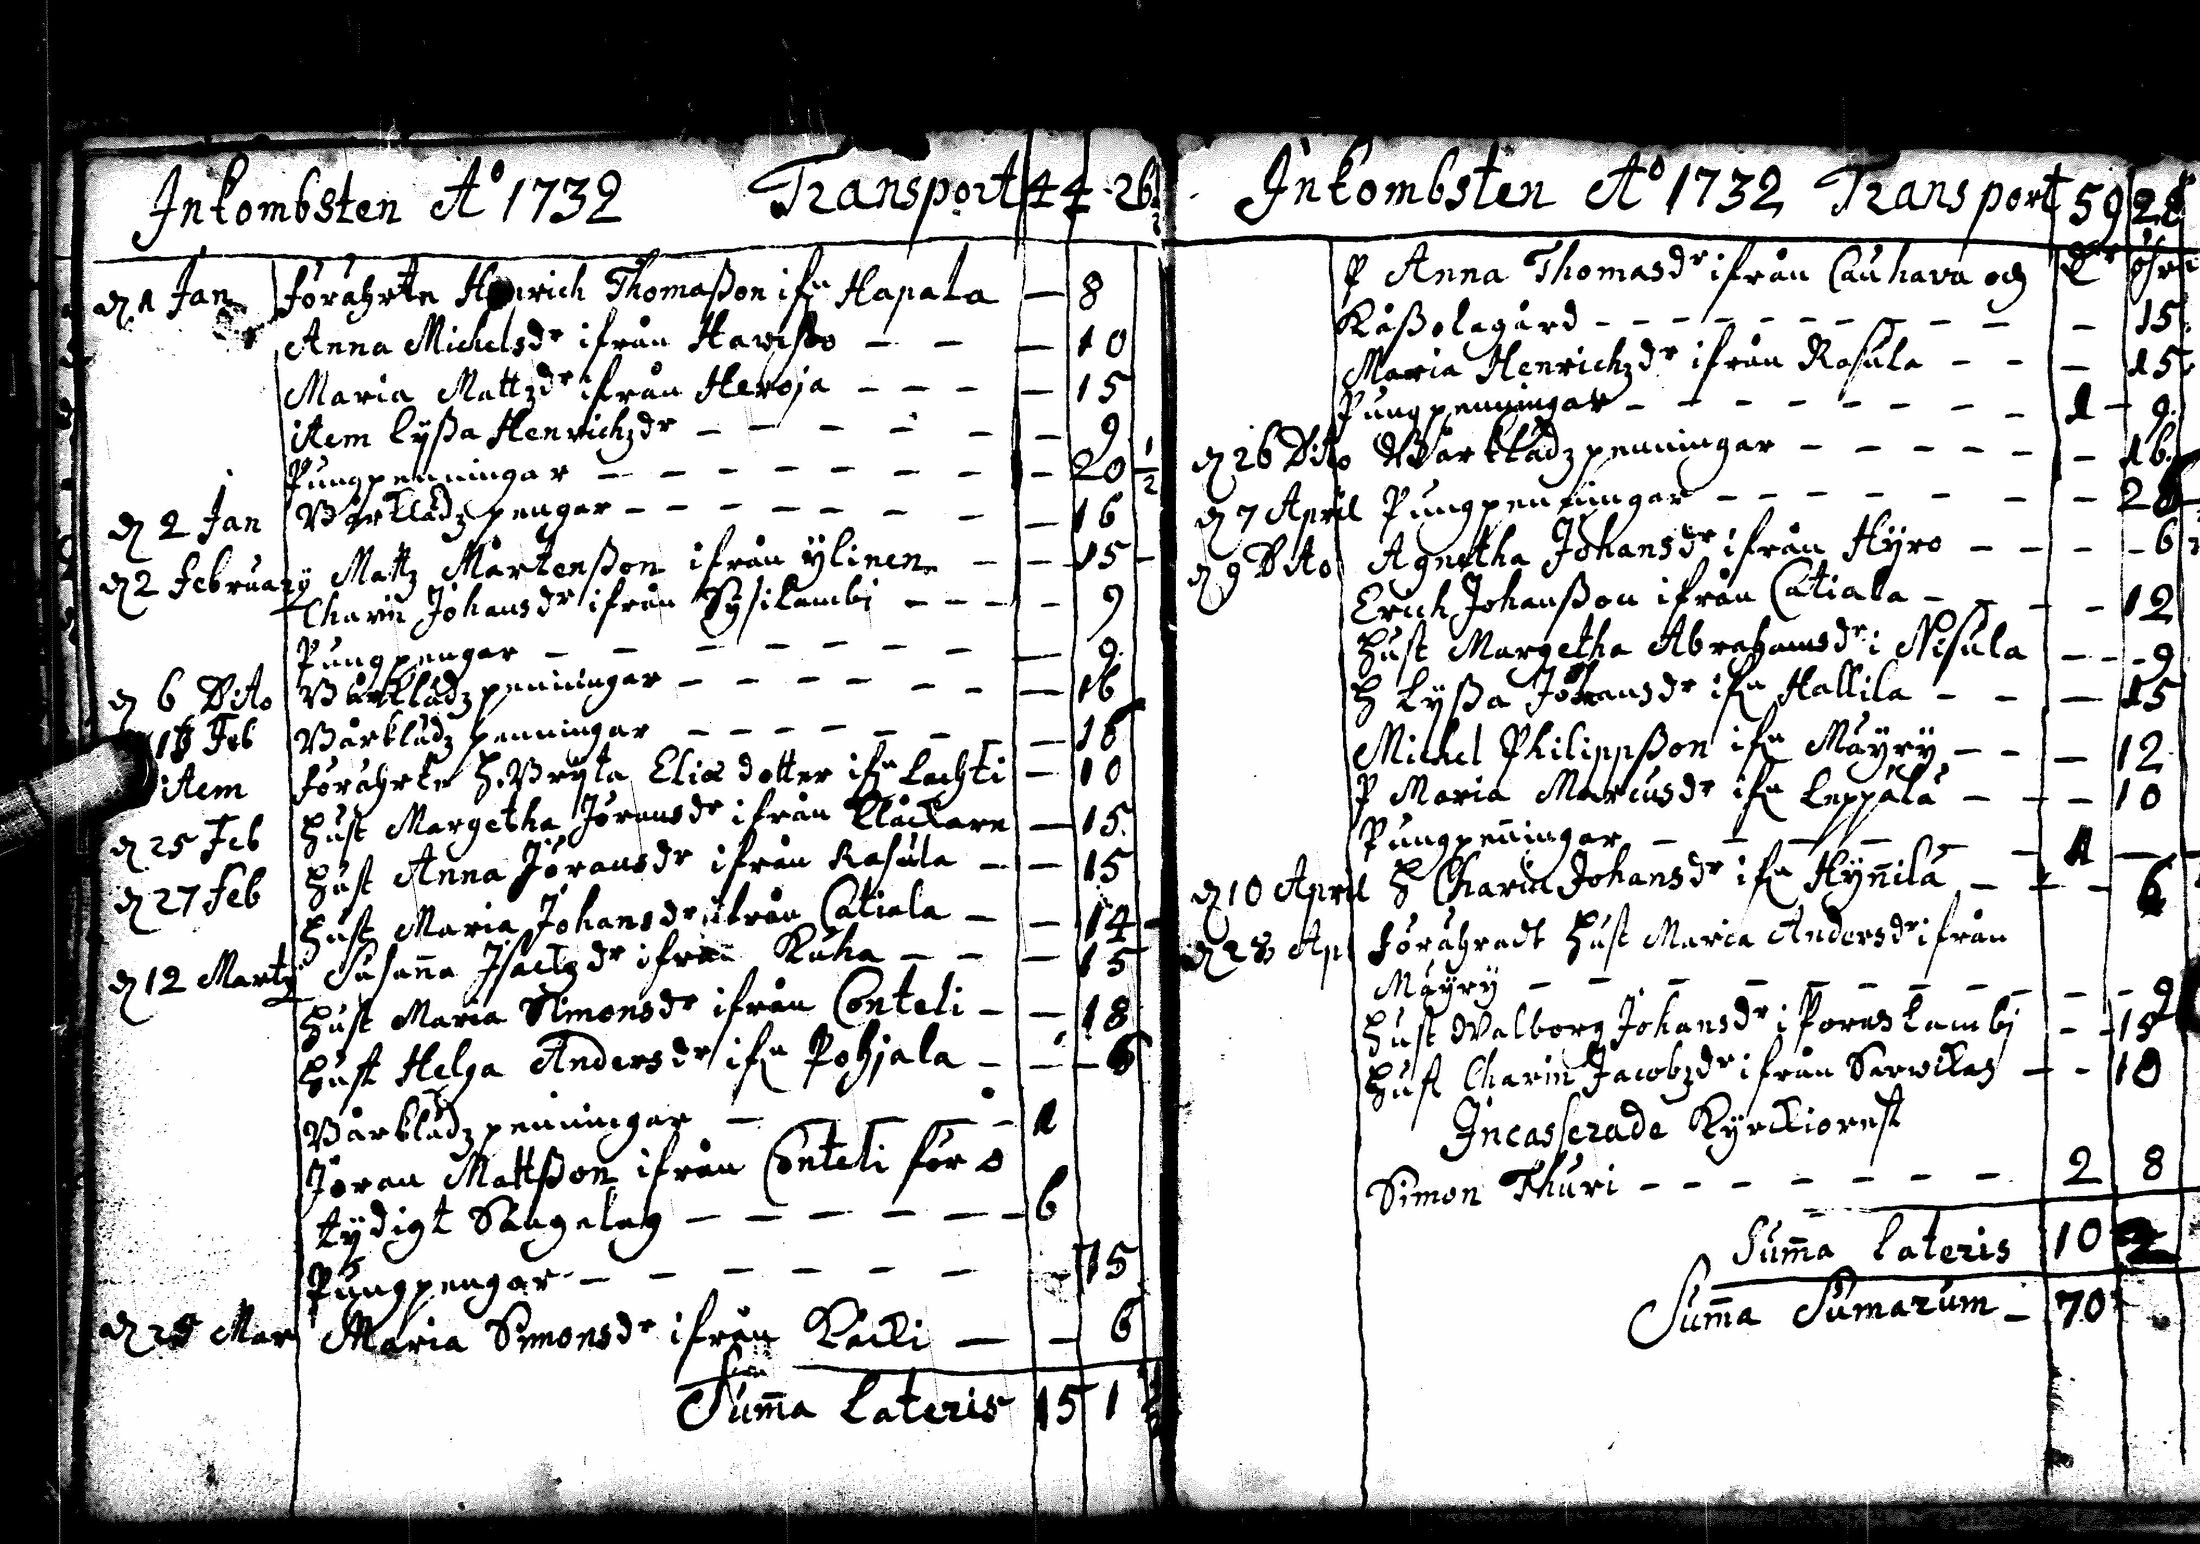 Inkombsten Aº 1732 Transport 44 26 1/2
d 1 Jan förährte Henrich Thomaßon ifn Hapala — 8
Anna Michelsdr ifrån Havisto — 10
Maria Mattzdr ifrån Heroja — 15
item Lyßa Henrichzdr — 9
Pungpenningar — 20 1/2
d 2 Jan Vårklädz pengar — 16
d 2 February Mattz Mårtenßon ifrån Ylinen — 15
Charin Johansdr ifrån Sysilambi — 9
Pungpengar — 9
d 6 Dito Vårklädz penningar — 16
Feb Vårklädz penningar — 16
item förährte H. Bryta Eliæ dotter ifn Lachti — 10
d 25 Feb Hust Margetha Jöransdr ifrån Klåckare — 15
d 27 Feb Hust Anna Jöransdr ifrån Rasula — 15
Hust Maria Johansdr ifrån Catiala — 14
d 12 Marty Susanna Isaczdr ifrån Kuha — 15
Hust Maria Simonsdr ifrån Conteli — 18
Hust Helga Andersdr ifn Pohjala — 6
Vårklädz penningar — 1
Jöran Mattßon ifrån Conteli för o
tydigt Sängelag — 6
Pungpengar — 15
d 25 Mar Maria Simonsdr ifrån Kåcki — 6
Summa Lateris 15 1
Inkombsten Aº 1732 Transport 59 28
P Anna Thomasdr ifrån Cauhava och
Kåßolagård — 15
Maria Henrichzdr ifrån Rasula — 15
Pungpenningar — 1 — 9
d 26 Dito Vårklädz penningar — 16
d 7 April Pungpenningar —
d 9 Dito Agnetha Johansdr ifrån Hyro — 6
Erich Johanßon ifrån Catiala — 12
Hust Margetha Abrahamsdr i Nisula — 9
H Lyßa Johansdr ifn Hallila — 15
Michel Philippßon ifn Mäyry — 12
P Maria Marcusdr ifn Leppälä — 10
Pungpeningar — 1 —
d 10 April H Charin Johansdr ifn Hynilä — 6
d 28 Ap förährade Hust Maria Andersdr ifrån
Mäyry — 9
Hust Walborg Johansdr i Poraslambi — 15
Hust Charin Jacobzdr ifrån Sarvikas — 10
Incasserade Kyrckiorest
Simon Thuri — 2 8
Summa Lateris 10 2
Summa Sumarum — 70